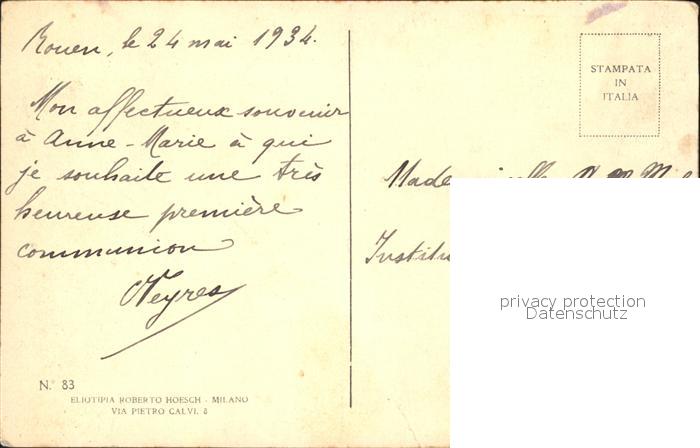 Rouen, le 24 mai 1934.
Mon affectueux souvenir
à Anne-Marie à qui
je souhaite une très
heureuse première
communion
Veyres
N.° 83
ELIOTIPIA ROBERTO HOESCH - MILANO
VIA PIETRO CALVI, 8
STAMPATA
IN
ITALIA
privacy protection
Datenschutz